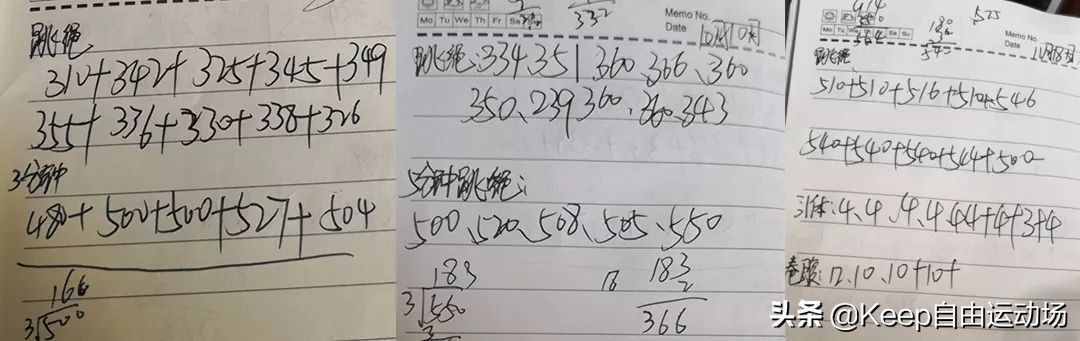 跳绳
310+342+325+345+349
355+336+330+338+326
3分钟
480+500+500+527+504
166
3√500
332
Mo Tu We Th Fr Sa
Memo No.
Date
跳绳:334、351、360、366、360
350、239、360、360、343
5分钟跳绳:
500、520、508、505、550
183
3√550
183
2
366
525
180
540
Mo Tu
Memo No.
Date
跳绳
510+510+516+510+546
540+540+540+544+500
引体:4、4、4、4、4+4+4+3+4
卷腹:12、10、10+10+
头条 @Keep自由运动场